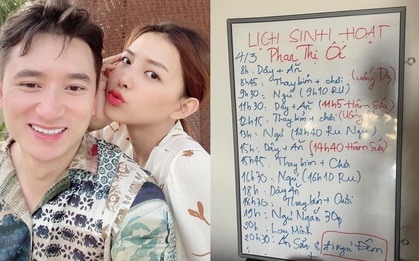 LỊCH SINH HOẠT
4/3 Phan Thị Ốc
8h: Dậy + Ăn
8h45: Thay bỉm + chơi (uống D3)
9h30: Ngủ (9h10 Ru)
11h30: Dậy + Ăn (11h5 Hâm Sữa)
12h15: Thay bỉm + chơi
13h: Ngủ (12h40 Ru Ngủ)
15h: Dậy + Ăn (14h40 Hâm Sữa)
15h45: Thay bỉm + Chơi
16h30: Ngủ (16h10 Ru)
18h: Dậy Ăn
18h30: Thay bỉm + Chơi
19h: Ngủ Ngắn 30p
20h: Lau Mình
20h30: Ăn Sữa & đi ngủ Đêm